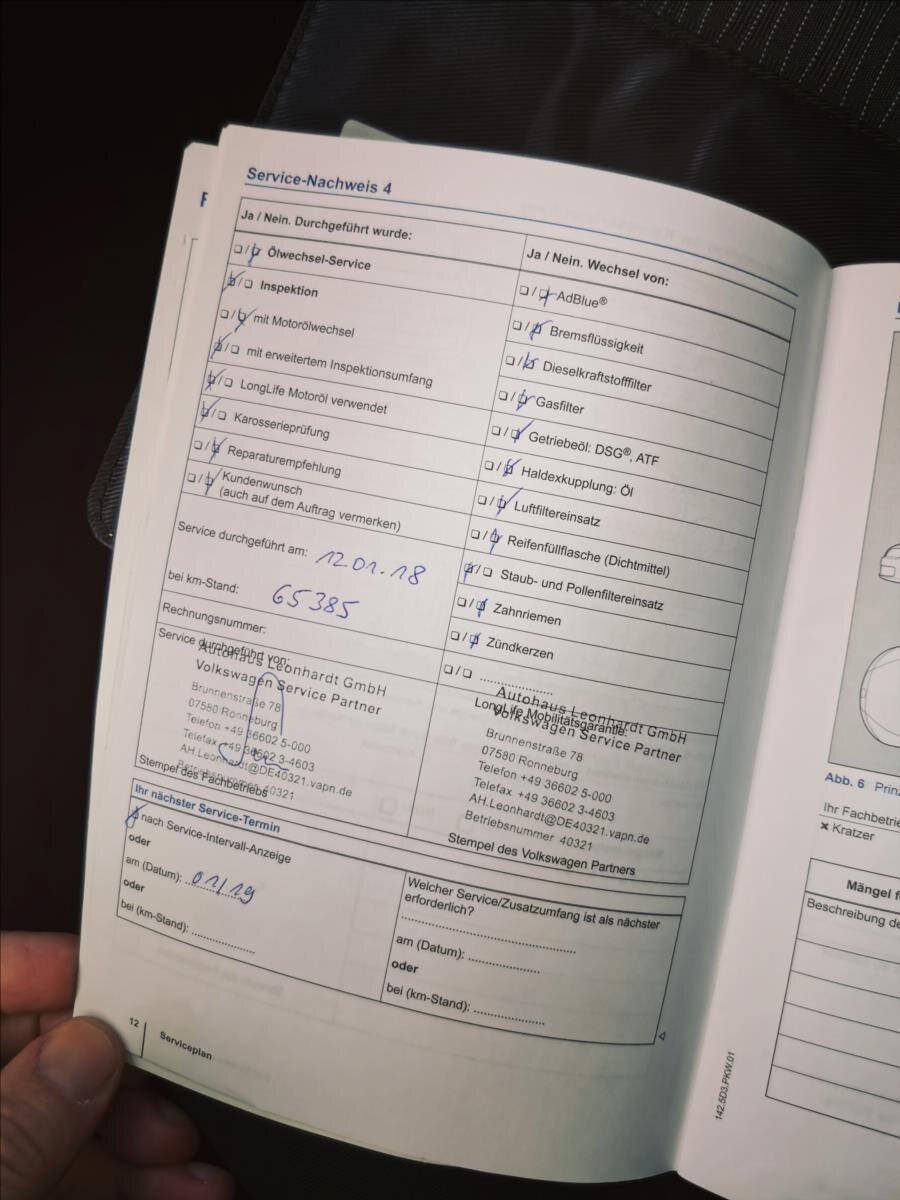 Service-Nachweis 4
Ja / Nein. Durchgeführt wurde:
❏ / ❏ Ölwechsel-Service
❏ / ❏ Inspektion
❏ / ❏ mit Motorölwechsel
❏ / ❏ mit erweitertem Inspektionsumfang
❏ / ❏ LongLife Motoröl verwendet
❏ / ❏ Karosserieprüfung
❏ / ❏ Reparaturempfehlung
❏ / ❏ Kundenwunsch
(auch auf dem Auftrag vermerken)
Service durchgeführt am: 12.01.18
bei km-Stand: 65385
Rechnungsnummer:
Service durchgeführt von:
Autohaus Leonhardt GmbH
Volkswagen Service Partner
Brunnenstraße 78
07580 Ronneburg
Telefon +49 36602 5-000
Telefax +49 36602 3-4603
AH.Leonhardt@DE40321.vapn.de
Betriebsnummer 40321
Stempel des Fachbetriebs
Ja / Nein. Wechsel von:
❏ / ❏ AdBlue®
❏ / ❏ Bremsflüssigkeit
❏ / ❏ Dieselkraftstofffilter
❏ / ❏ Gasfilter
❏ / ❏ Getriebeöl: DSG®, ATF
❏ / ❏ Haldexkupplung: Öl
❏ / ❏ Luftfiltereinsatz
❏ / ❏ Reifenfüllflasche (Dichtmittel)
❏ / ❏ Staub- und Pollenfiltereinsatz
❏ / ❏ Zahnriemen
❏ / ❏ Zündkerzen
❏ / ❏ ....................
LongLife Mobilitätsgarantie:
Autohaus Leonhardt GmbH
Volkswagen Service Partner
Brunnenstraße 78
07580 Ronneburg
Telefon +49 36602 5-000
Telefax +49 36602 3-4603
AH.Leonhardt@DE40321.vapn.de
Betriebsnummer 40321
Stempel des Volkswagen Partners
Ihr nächster Service-Termin
❏ nach Service-Intervall-Anzeige
oder
am (Datum): 01/19
oder
bei (km-Stand): ..................
Welcher Service/Zusatzumfang ist als nächster
erforderlich?
..................................................
am (Datum): ....................
oder
bei (km-Stand): ....................
12
Serviceplan
142.5D3.PKW.01
Abb. 6 Prinz
Ihr Fachbetrie
× Kratzer
Mängel f
Beschreibung de